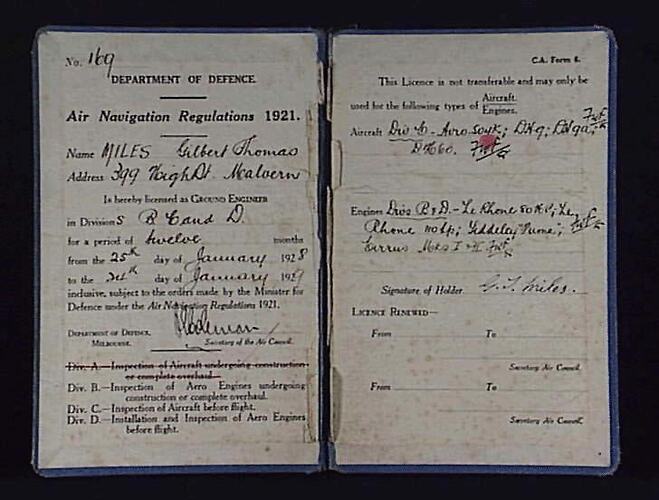 No. 169
DEPARTMENT OF DEFENCE.
Air Navigation Regulations 1921.
Name MILES Gilbert Thomas
Address 399 High St Malvern
Is hereby licensed as GROUND ENGINEER
in Divisions B C and D.
for a period of twelve months
from the 25th day of January 1928
to the 24th day of January 1929
inclusive, subject to the orders made by the Minister for
Defence under the Air Navigation Regulations 1921.
DEPARTMENT OF DEFENCE,
MELBOURNE.
Secretary of the Air Council.
Div. A.—Inspection of Aircraft undergoing construction
or complete overhaul.
Div. B.—Inspection of Aero Engines undergoing
construction or complete overhaul.
Div. C.—Inspection of Aircraft before flight.
Div. D.—Installation and Inspection of Aero Engines
before flight.
C.A. Form 8.
This Licence is not transferable and may only be
used for the following types of Aircraft.
Engines.
Aircraft Div C - Avro 504K; DH9; DH9a;
DH60.
Engines Divs B & D - Le Rhone 80 H.P; Le
Rhone 110 hp; Siddeley Puma;
Cirrus Mks I & II
Signature of Holder G. T. Miles.
LICENCE RENEWED—
From To
Secretary Air Council.
From To
Secretary Air Council.